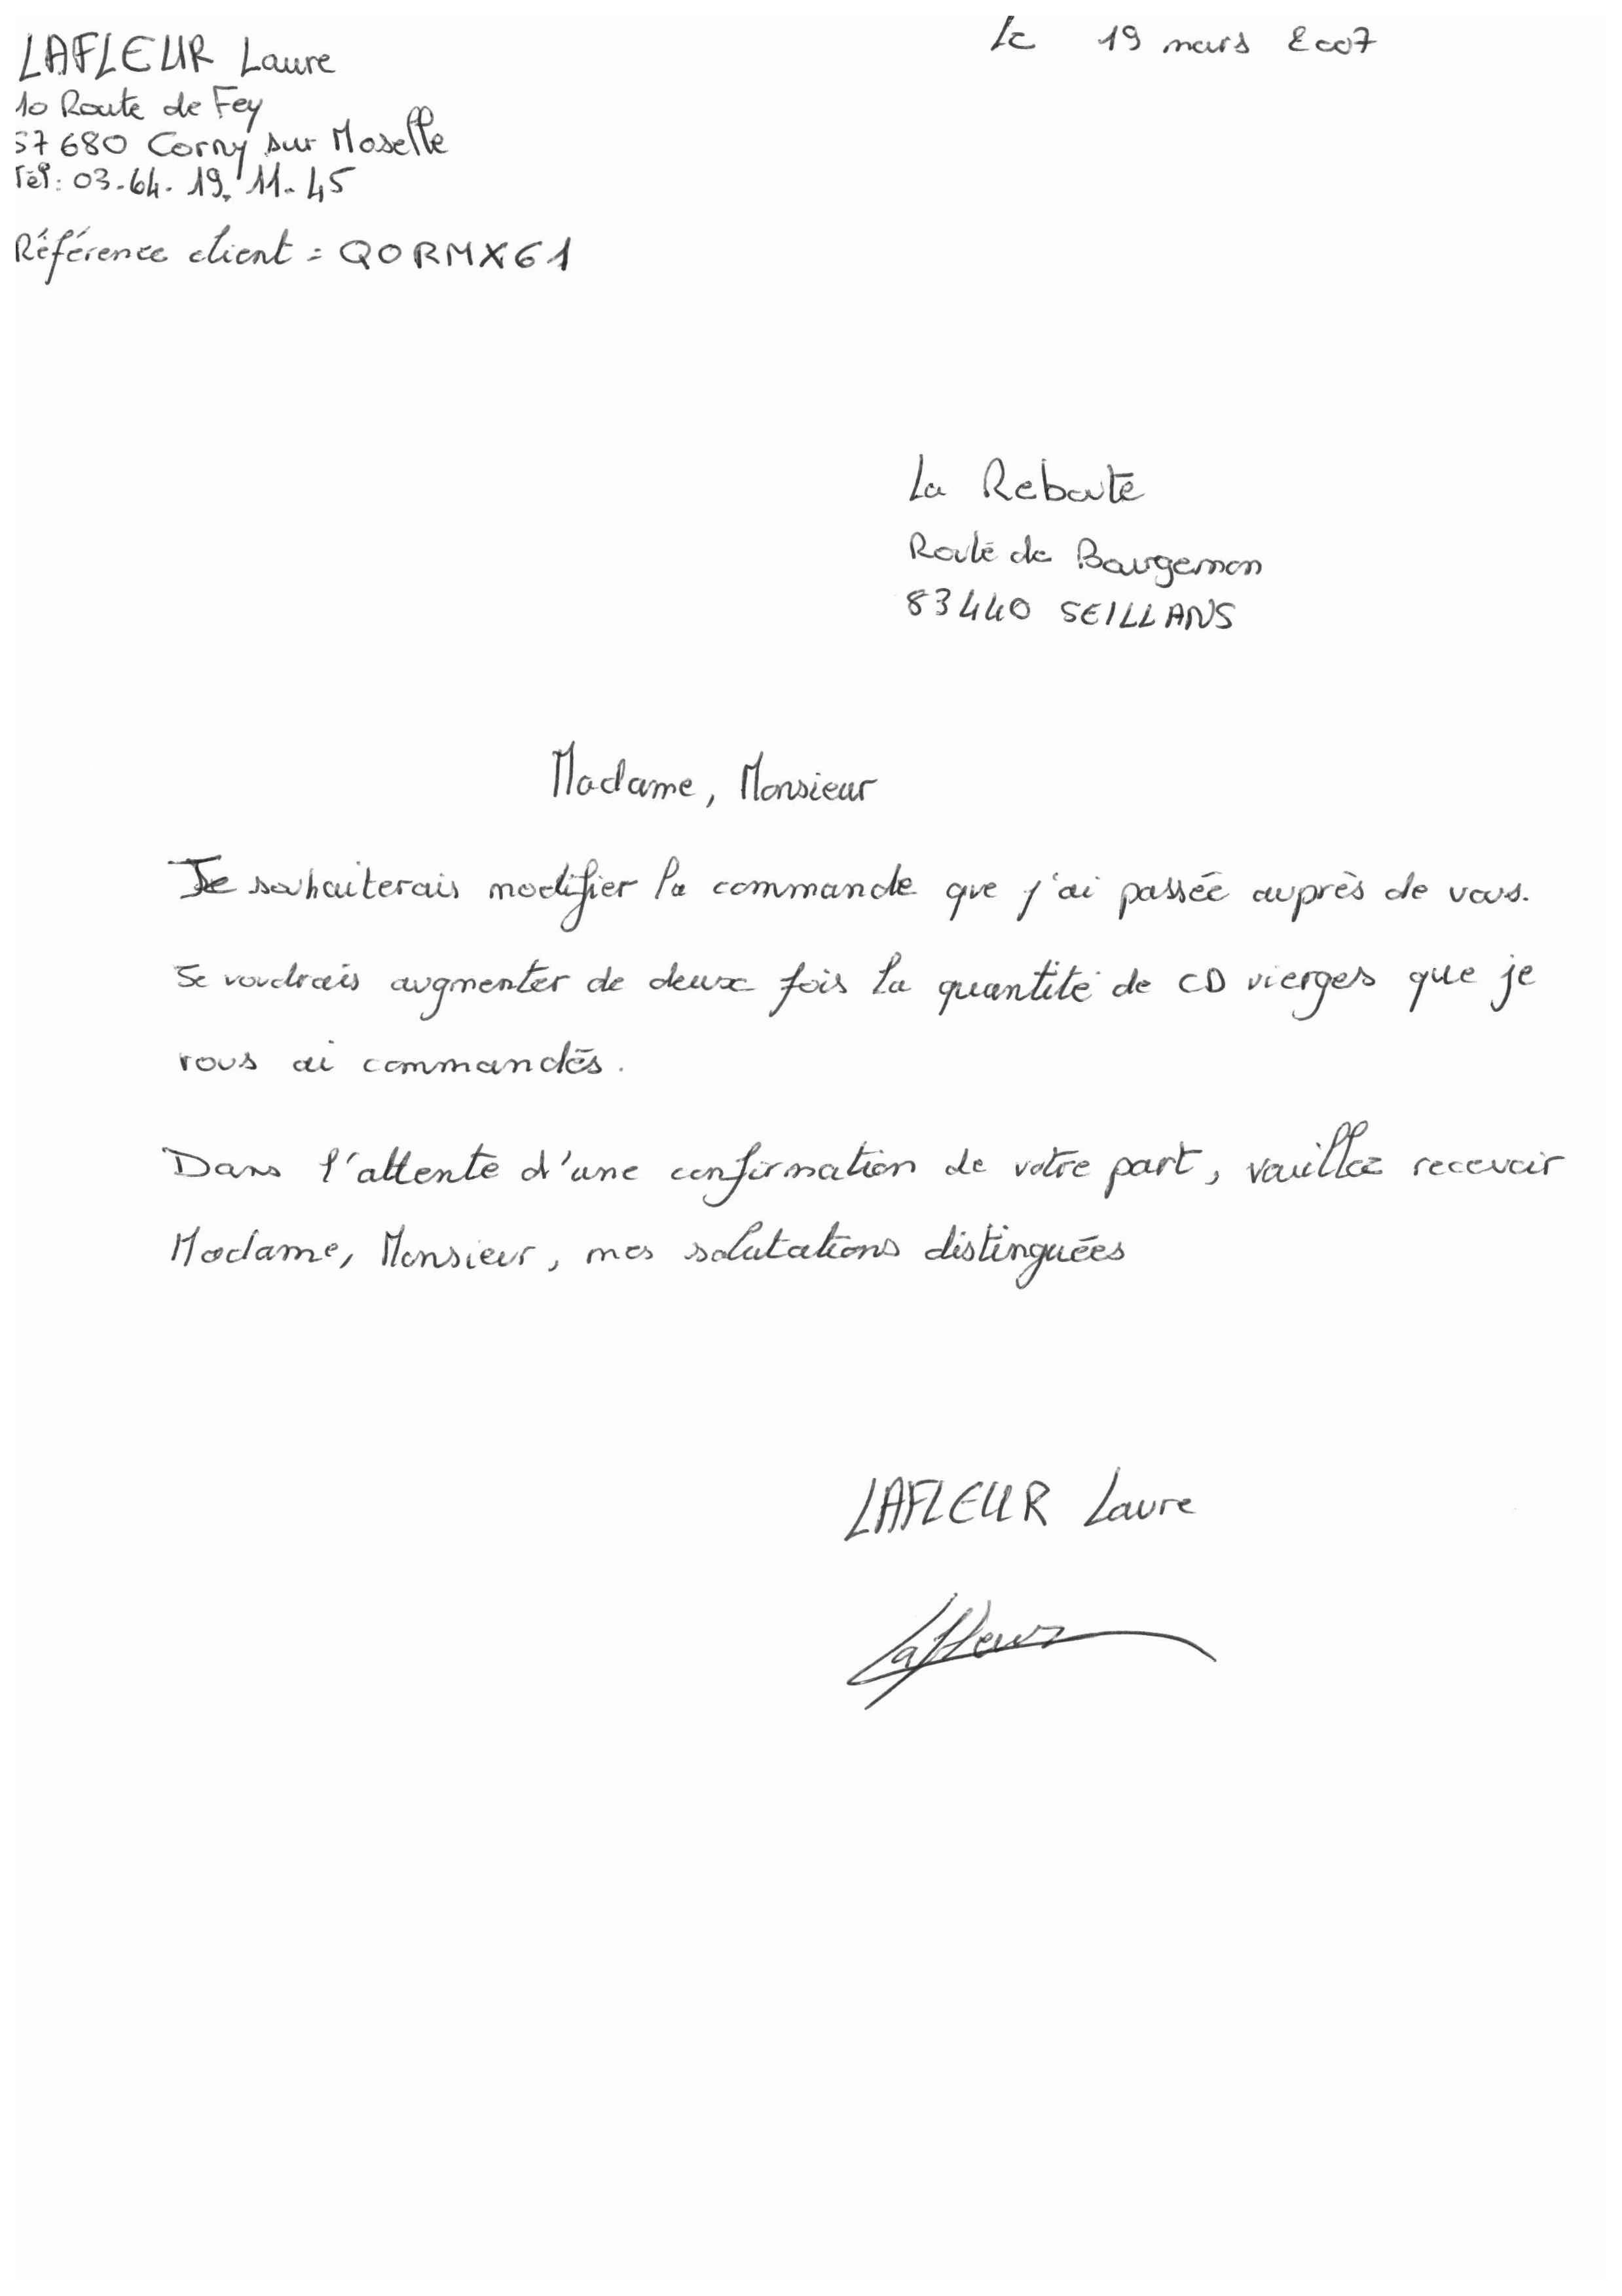 LAFLEUR Laure
10 Route de Fey
57680 Corny sur Moselle
Tél: 03.64.19.11.45
Référence client = QORMX61
Le 19 mars 2007
La Reboute
Route de Bourgemon
83440 SEILLANS
Madame, Monsieur
Je souhaiterais modifier la commande que j'ai passée auprès de vous.
Je voudrais augmenter de deux fois la quantité de CD vierges que je
vous ai commandés.
Dans l'attente d'une confirmation de votre part, veuillez recevoir
Madame, Monsieur, mes salutations distinguées
LAFLEUR Laure
Lafleur